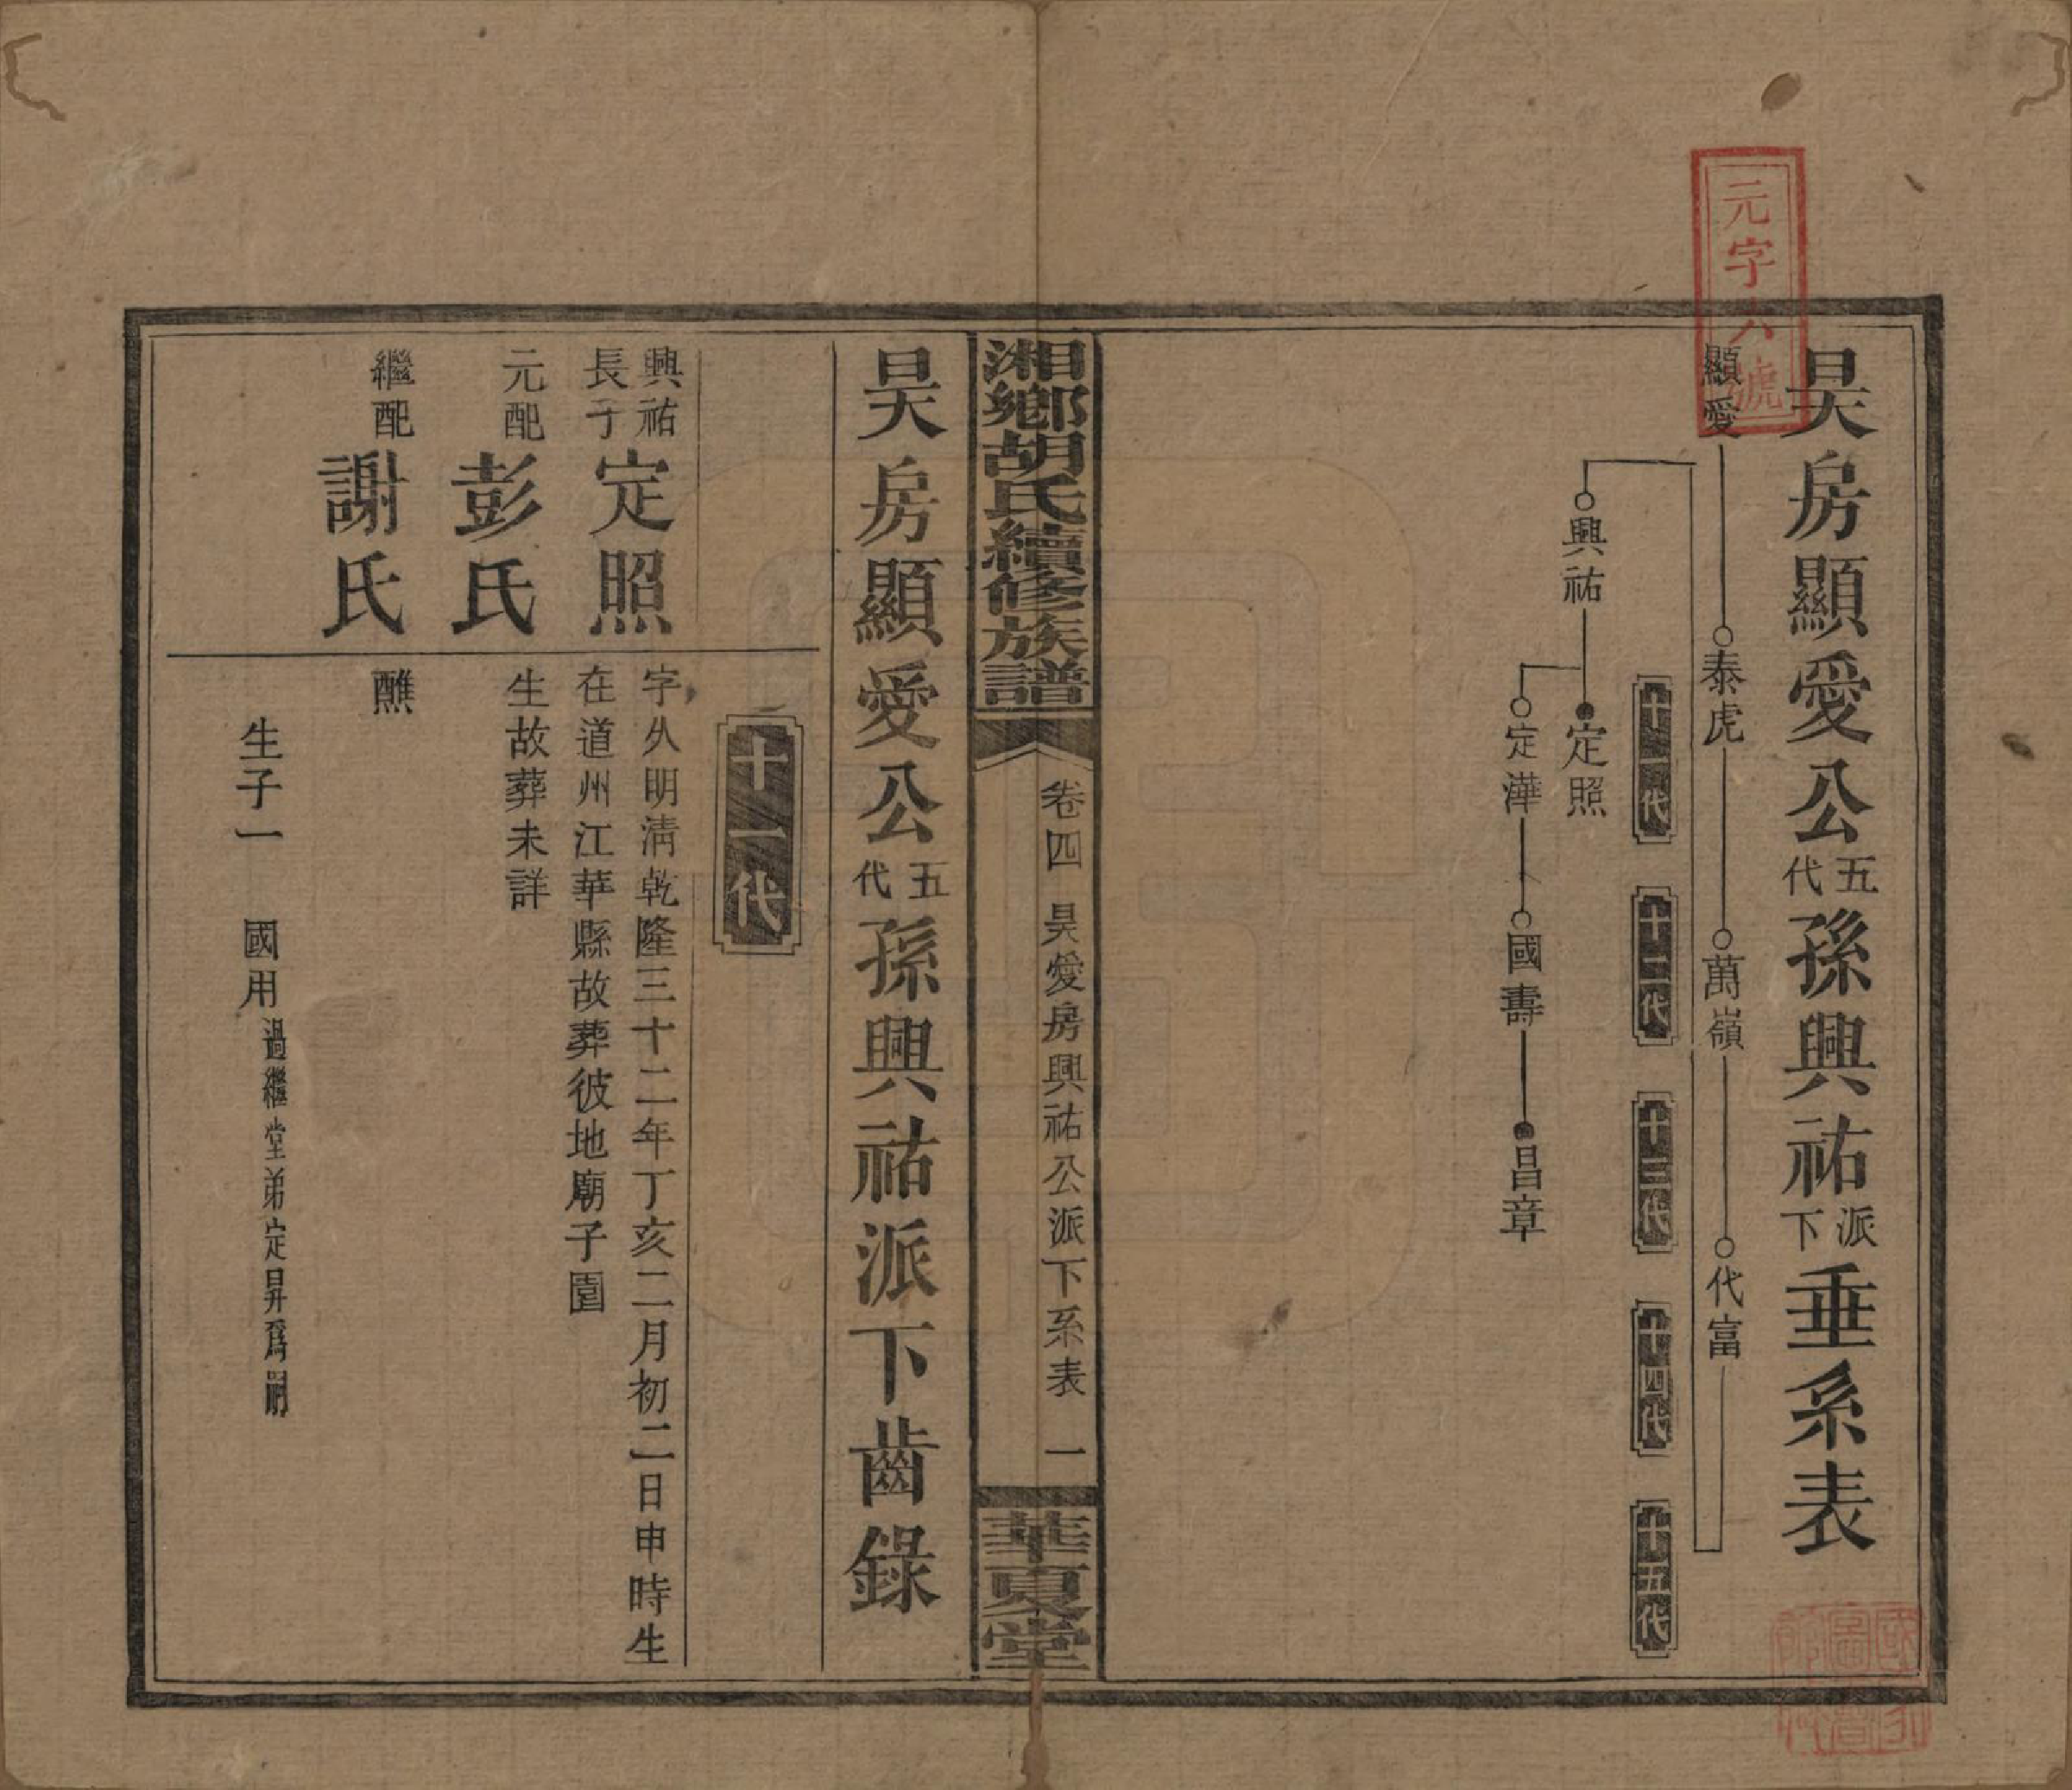 元字六號
昊房顯愛公五代孫興祐派下垂系表
顯愛
泰虎
萬嶺
代富
十一代
十二代
十三代
十四代
十五代
興祐
定照
定澕
國壽
昌章
湘鄉胡氏續修族譜
卷四 昊愛房興祐公派下系表 一
華夏堂
昊房顯愛公五代孫興祐派下齒錄
十一代
興祐長子 定照
字久明清乾隆三十二年丁亥二月初二日申時生
在道州江華縣故葬彼地廟子園
元配 彭氏
生故葬未詳
繼配 謝氏
醮
生子一 國用 過繼堂弟定昇爲嗣